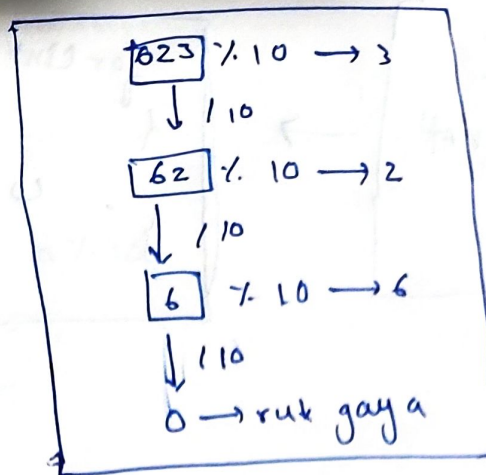 623 % 10 → 3
↓ / 10
62 % 10 → 2
↓ / 10
6 % 10 → 6
↓ / 10
0 → ruk gaya